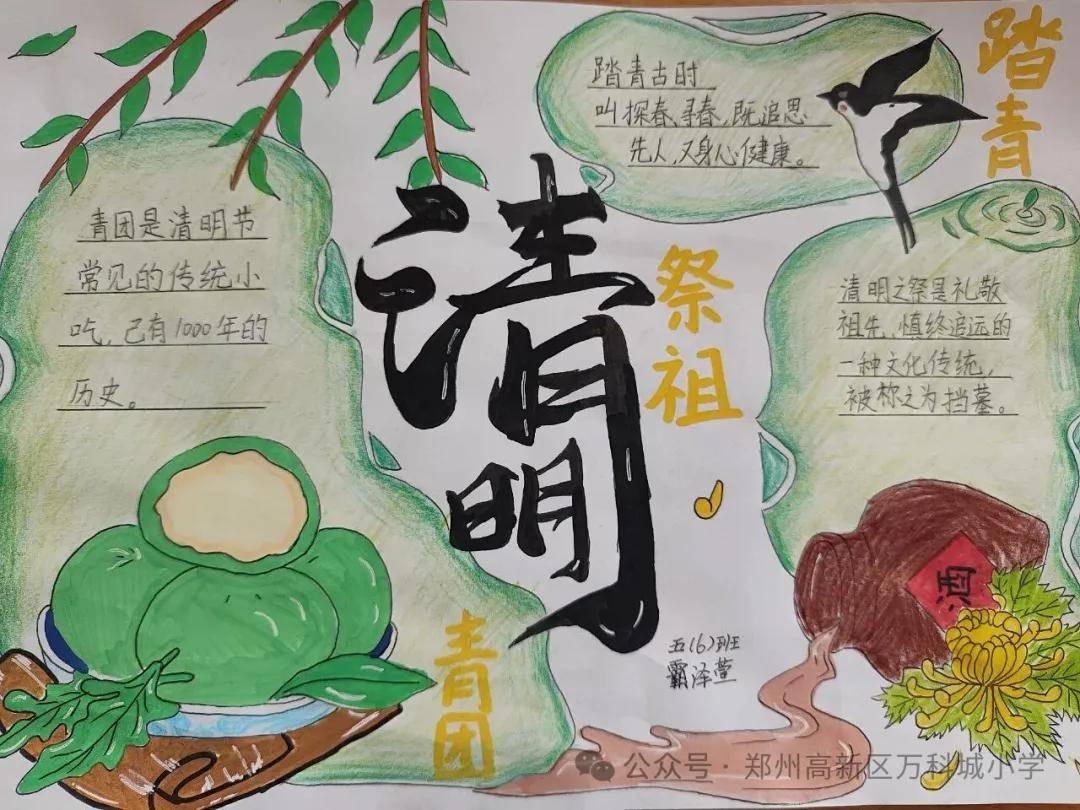 踏青
踏青古时
叫探春、寻春,既追思
先人,又身心健康。
青团是清明节
常见的传统小
吃,已有1000年的
历史。
清明
祭祖
清明之祭是礼敬
祖先、慎终追远的
一种文化传统,
被称之为挡墓。
酒
青团
五(6)班
霸泽萱
公众号·郑州高新区万科城小学